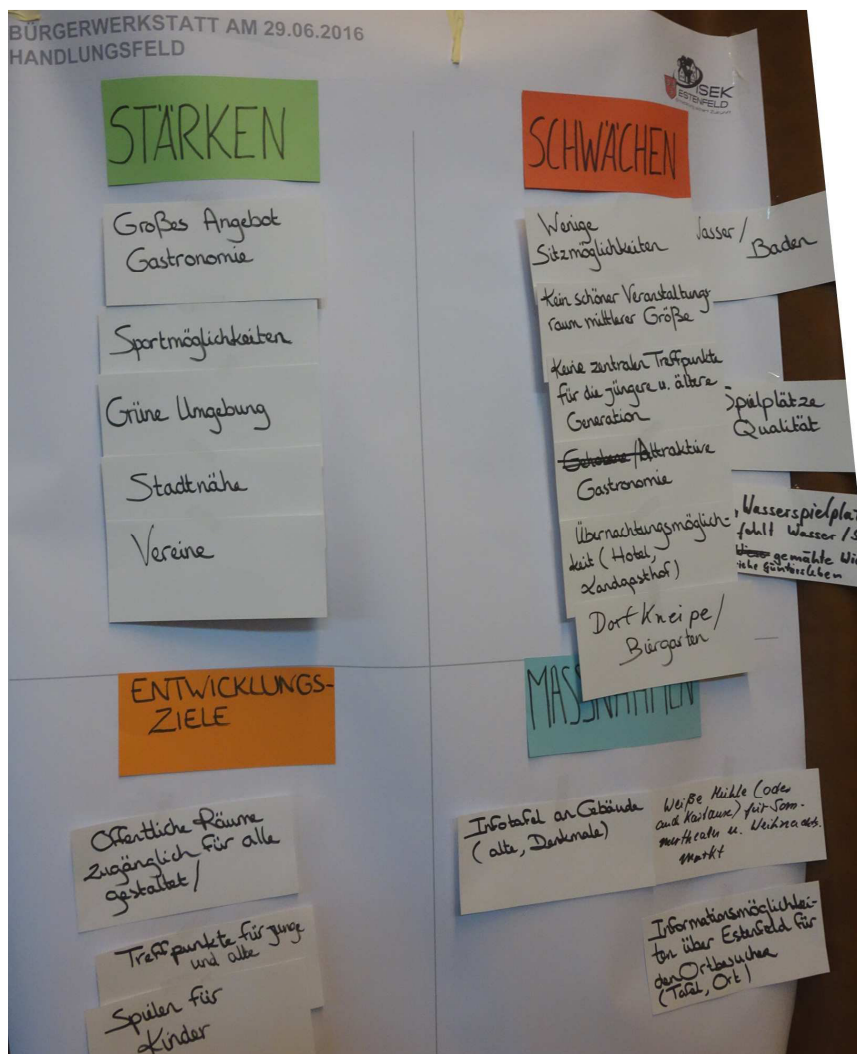 BÜRGERWERKSTATT AM 29.06.2016
HANDLUNGSFELD
ISEK
ESTENFELD
STÄRKEN
Großes Angebot
Gastronomie
Sportmöglichkeiten
Grüne Umgebung
Stadtnähe
Vereine
SCHWÄCHEN
Wenige
Sitzmöglichkeiten
Kein schöner Veranstaltungs-
raum mittlerer Größe
Keine zentralen Treffpunkte
für die jüngere u. ältere
Generation
Gehobene/Attraktive
Gastronomie
Übernachtungsmöglich-
keit (Hotel,
Landgasthof)
Dorf Kneipe/
Biergarten
Wasser/
Baden
Spielplätze
Qualität
Wasserspielpla
fehlt Wasser/S
gemähte Wi
Güntersleben
ENTWICKLUNGS-
ZIELE
Öffentliche Räume
zugänglich für alle
gestaltet/
Treffpunkte für junge
und alte
Spielen für
Kinder
MASSNAHMEN
Infotafel an Gebäude
(alte, Denkmale)
Weiße Mühle (oder
auch Kartause) für Som-
mertheater u. Weihnachts-
markt
Informationsmöglichkei-
ten über Estenfeld für
den Ortbesucher
(Tafel, Ort)